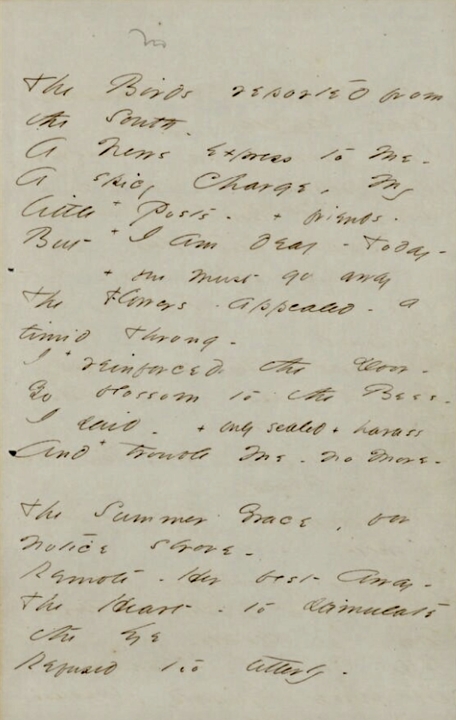 The Birds reported from
the South -
A News express to Me -
A spicy Charge, My
little + Posts - + friends -
But + I am deaf - Today -
+ you must go away
The Flowers - appealed - a
timid Throng -
I + reinforced the Door -
Go blossom to the Bees -
I said - + only sealed + harass
And + trouble Me - no more -
The Summer Grace, for
notice strove -
Remote - Her best Array -
The Heart - to stimulate
the Eye
Refused too utterly -